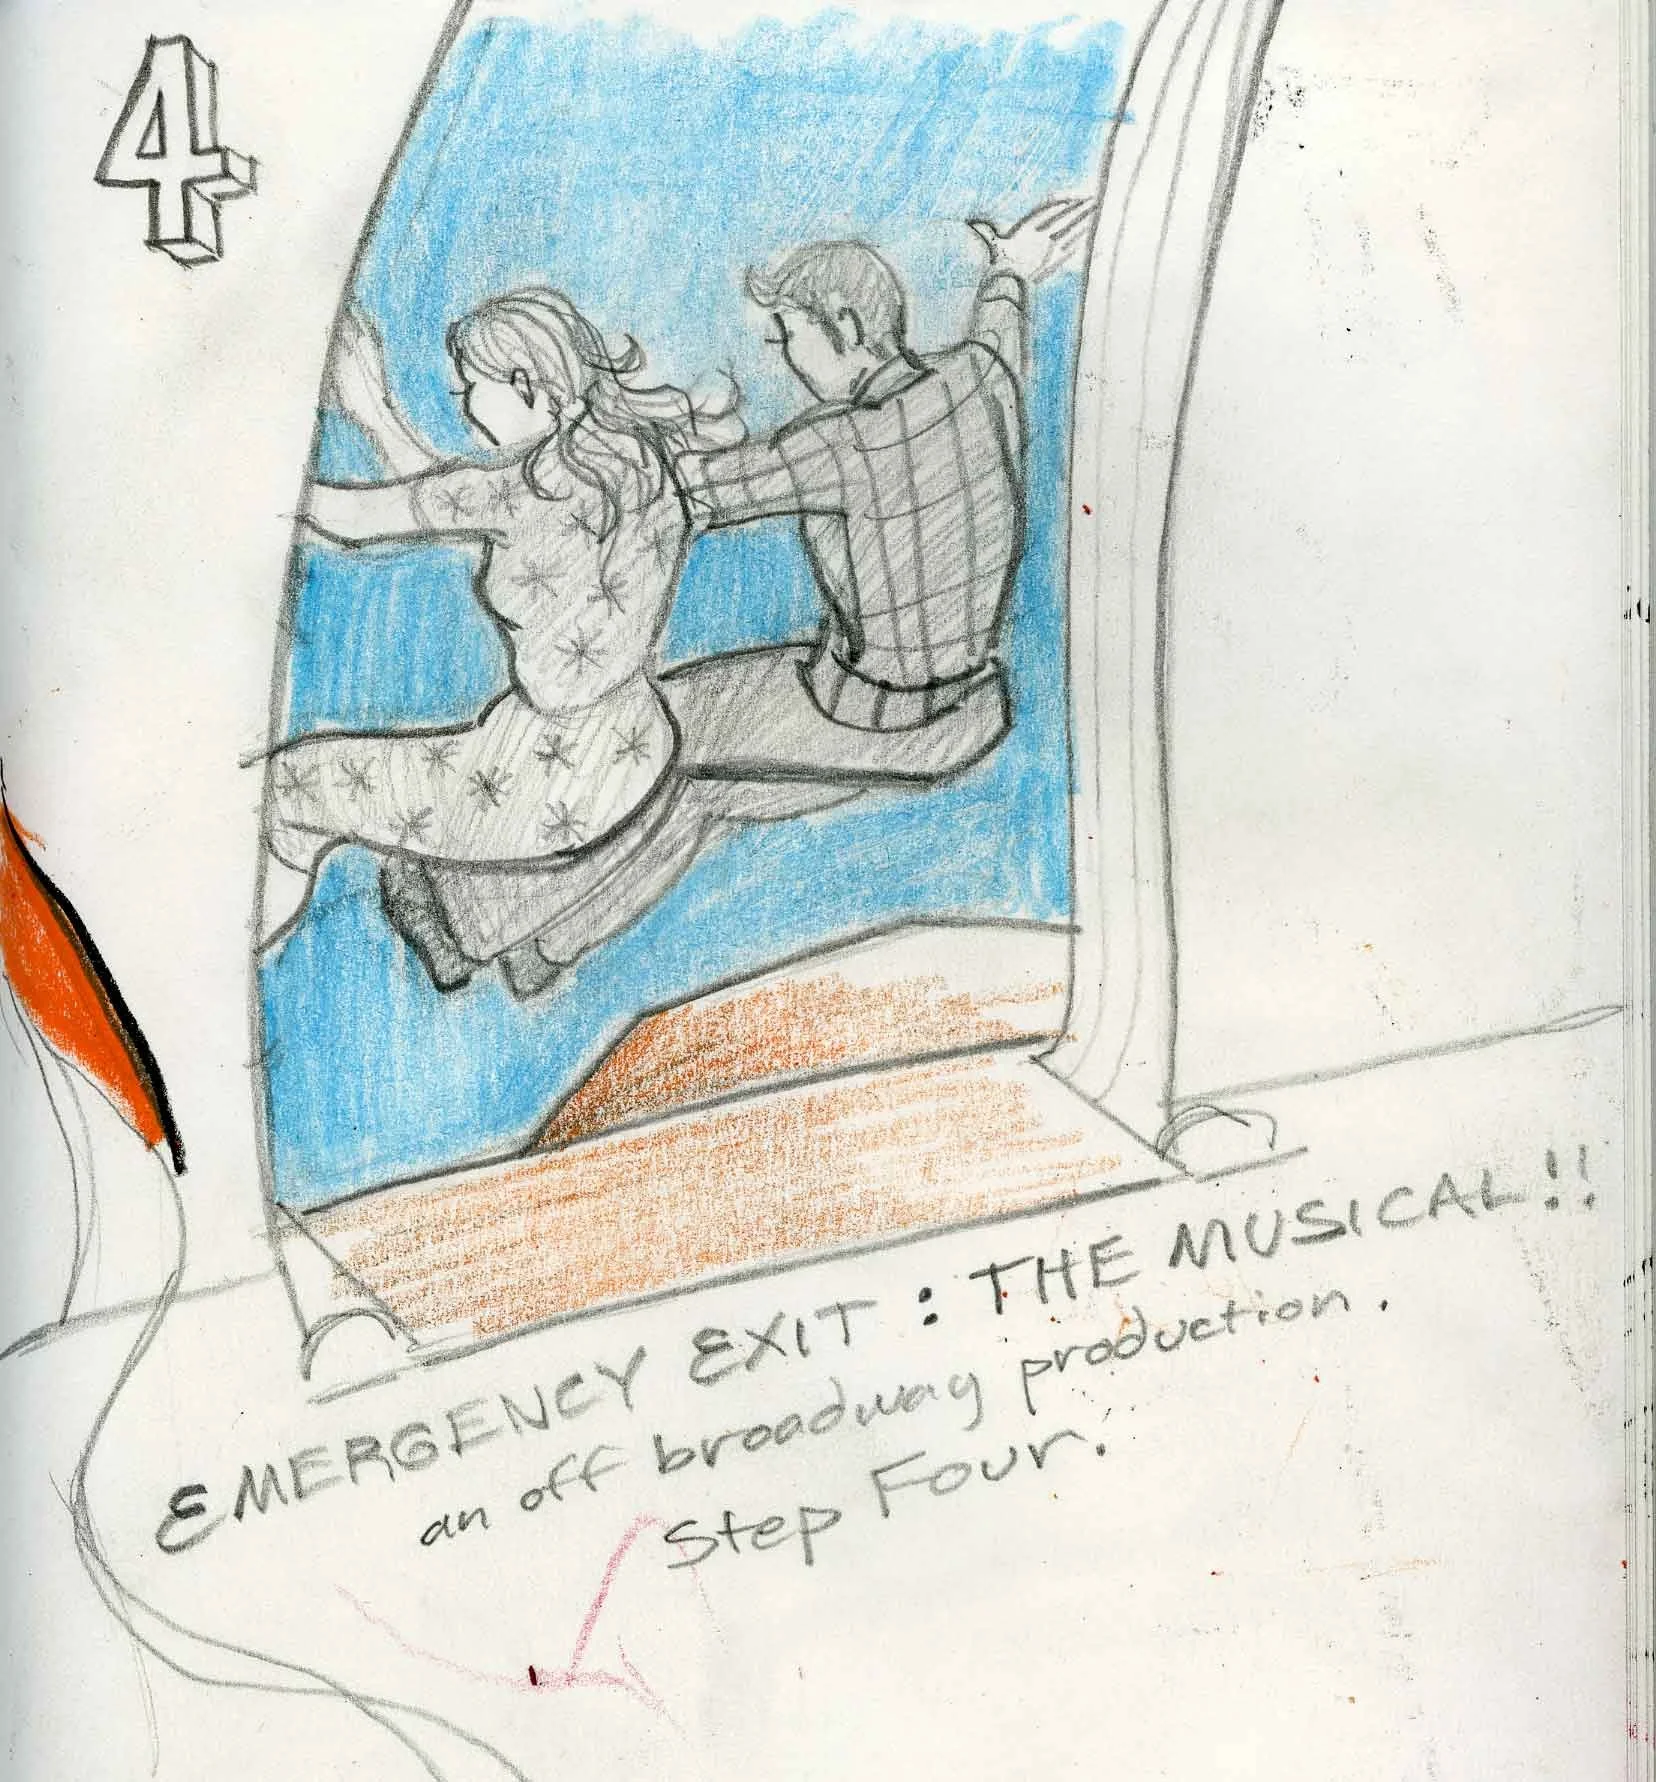 4
EMERGENCY EXIT : THE MUSICAL!!
an off broadway production.
Step Four.